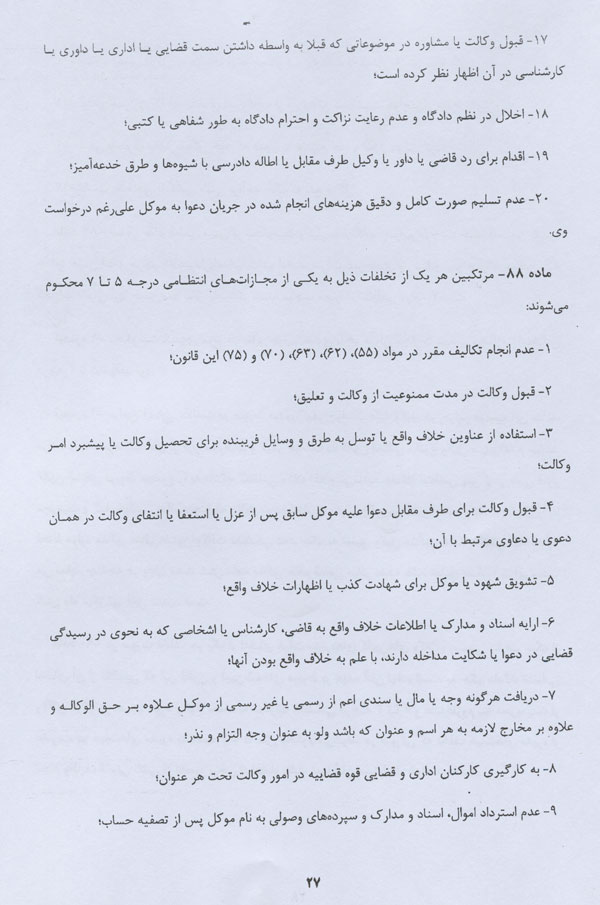 ۱۷- قبول وکالت یا مشاوره در موضوعاتی که قبلا به واسطه داشتن سمت قضایی یـا اداری یـا داوری یـا
کارشناسی در آن اظهار نظر کرده است؛
۱۸- اخلال در نظم دادگاه و عدم رعایت نزاکت و احترام دادگاه به طور شفاهی یا کتبی؛
۱۹- اقدام برای رد قاضی یا داور یا وکیل طرف مقابل یا اطاله دادرسی با شیوه‌ها و طرق خدعه‌آمیز؛
۲۰- عدم تسلیم صورت کامل و دقیق هزینه‌های انجام شده در جریان دعوا به موکل علی‌رغم درخواست
وی.
ماده ۸۸- مرتکبین هر یک از تخلفات ذیل به یکـی از مجـازات‌هـای انتظـامی درجـه ۵ تـا ۷ محکـوم
می‌شوند:
۱- عدم انجام تکالیف مقرر در مواد (۵۵)، (۶۲)، (۶۳)، (۷۰) و (۷۵) این قانون؛
۲- قبول وکالت در مدت ممنوعیت از وکالت و تعلیق؛
۳- استفاده از عناوین خلاف واقع یا توسل به طرق و وسایل فریبنده برای تحصیل وکالت یا پیشبرد امـر
وکالت؛
۴- قبول وکالت برای طرف مقابل دعوا علیه موکل سابق پس از عزل یا استعفا یا انتفای وکالت در همـان
دعوی یا دعاوی مرتبط با آن؛
۵- تشویق شهود یا موکل برای شهادت کذب یا اظهارات خلاف واقع؛
۶- ارایه اسناد و مدارک یا اطلاعات خلاف واقع به قاضی، کارشناس یا اشخاصی که به نحوی در رسیدگی
قضایی در دعوا یا شکایت مداخله دارند، با علم به خلاف واقع بودن آنها؛
۷- دریافت هرگونه وجه یا مال یا سندی اعم از رسمی یا غیر رسمی از موکـل عـلاوه بـر حـق الوکالـه و
علاوه بر مخارج لازمه به هر اسم و عنوان که باشد ولو به عنوان وجه التزام و نذر؛
۸- به کارگیری کارکنان اداری و قضایی قوه قضاییه در امور وکالت تحت هر عنوان؛
۹- عدم استرداد اموال، اسناد و مدارک و سپرده‌های وصولی به نام موکل پس از تصفیه حساب؛
۲۷